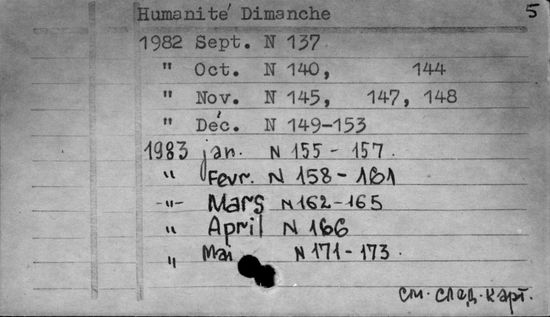 5
Humanité Dimanche
1982 Sept. N 137
" Oct. N 140, 144
" Nov. N 145, 147, 148
" Déc. N 149-153
1983 jan. N 155 - 157.
" Fevr. N 158 - 161
-"- Mars N 162 - 165
" April N 166
" Mai N 171 - 173.
см. след. карт.